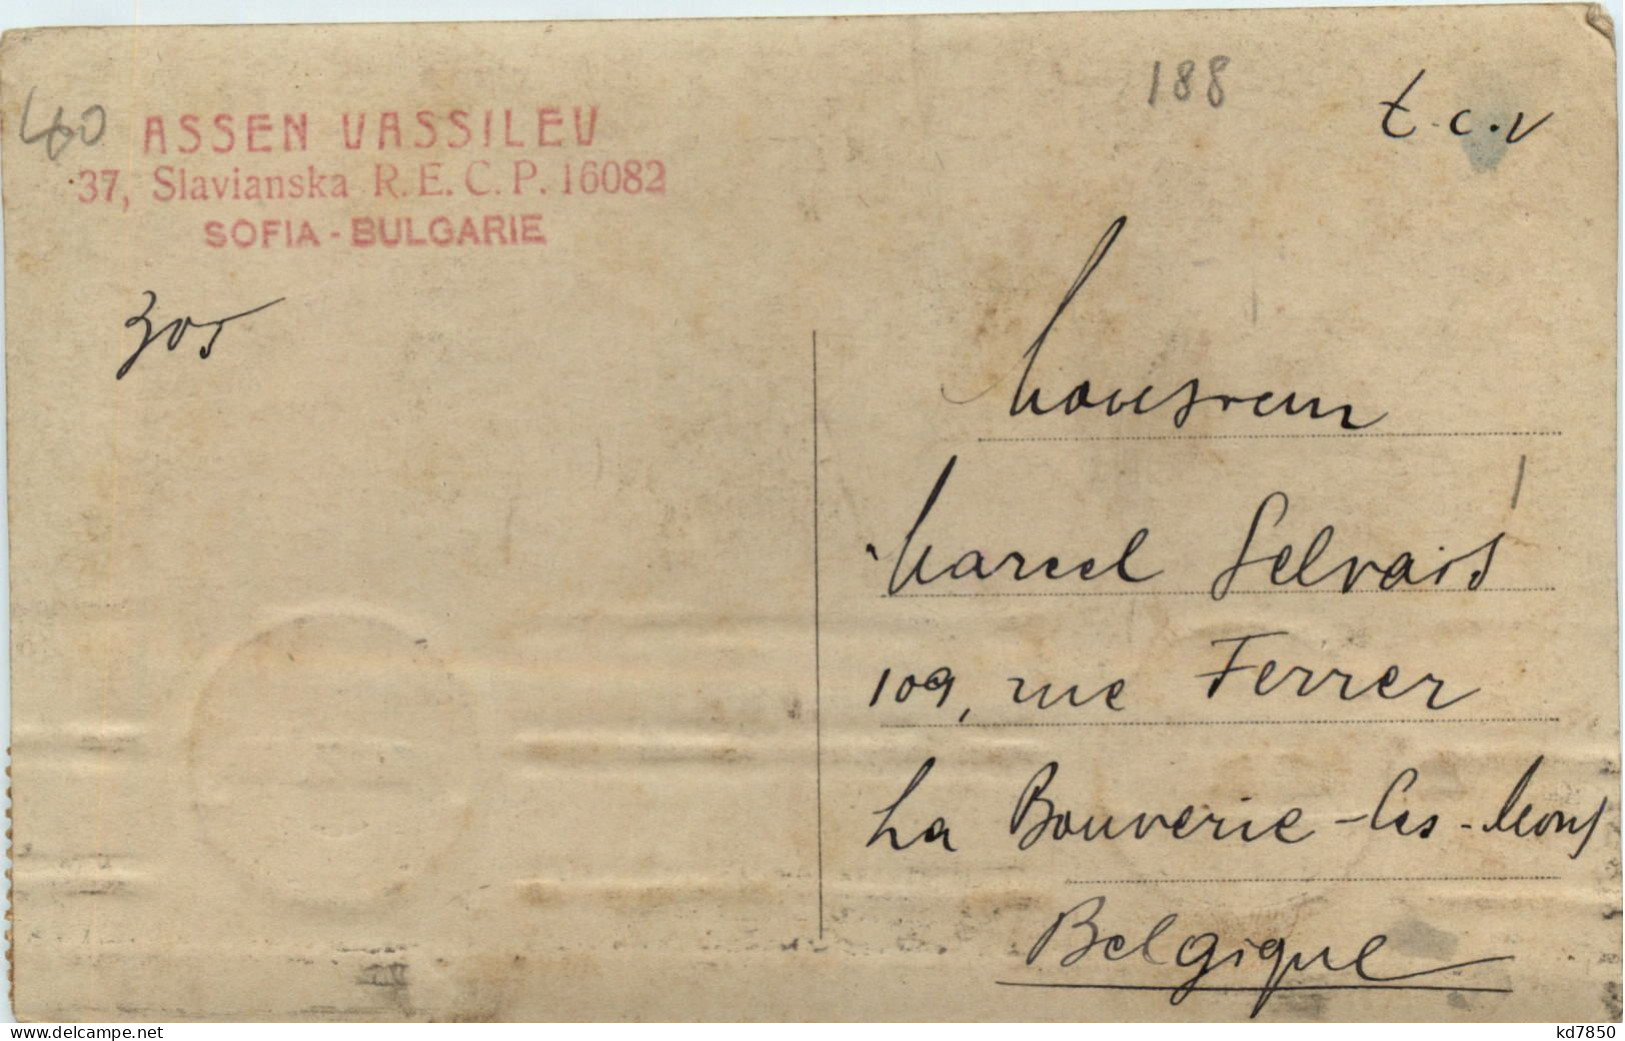 188
t.c.v
40
ASSEN VASSILEV
37, Slavianska R.E.C.P. 16082
SOFIA - BULGARIE
305
Monsieur
Marcel Gelvais
109, rue Ferrer
La Bouverie - les - Mons
Belgique
www.delcampe.net
kd7850